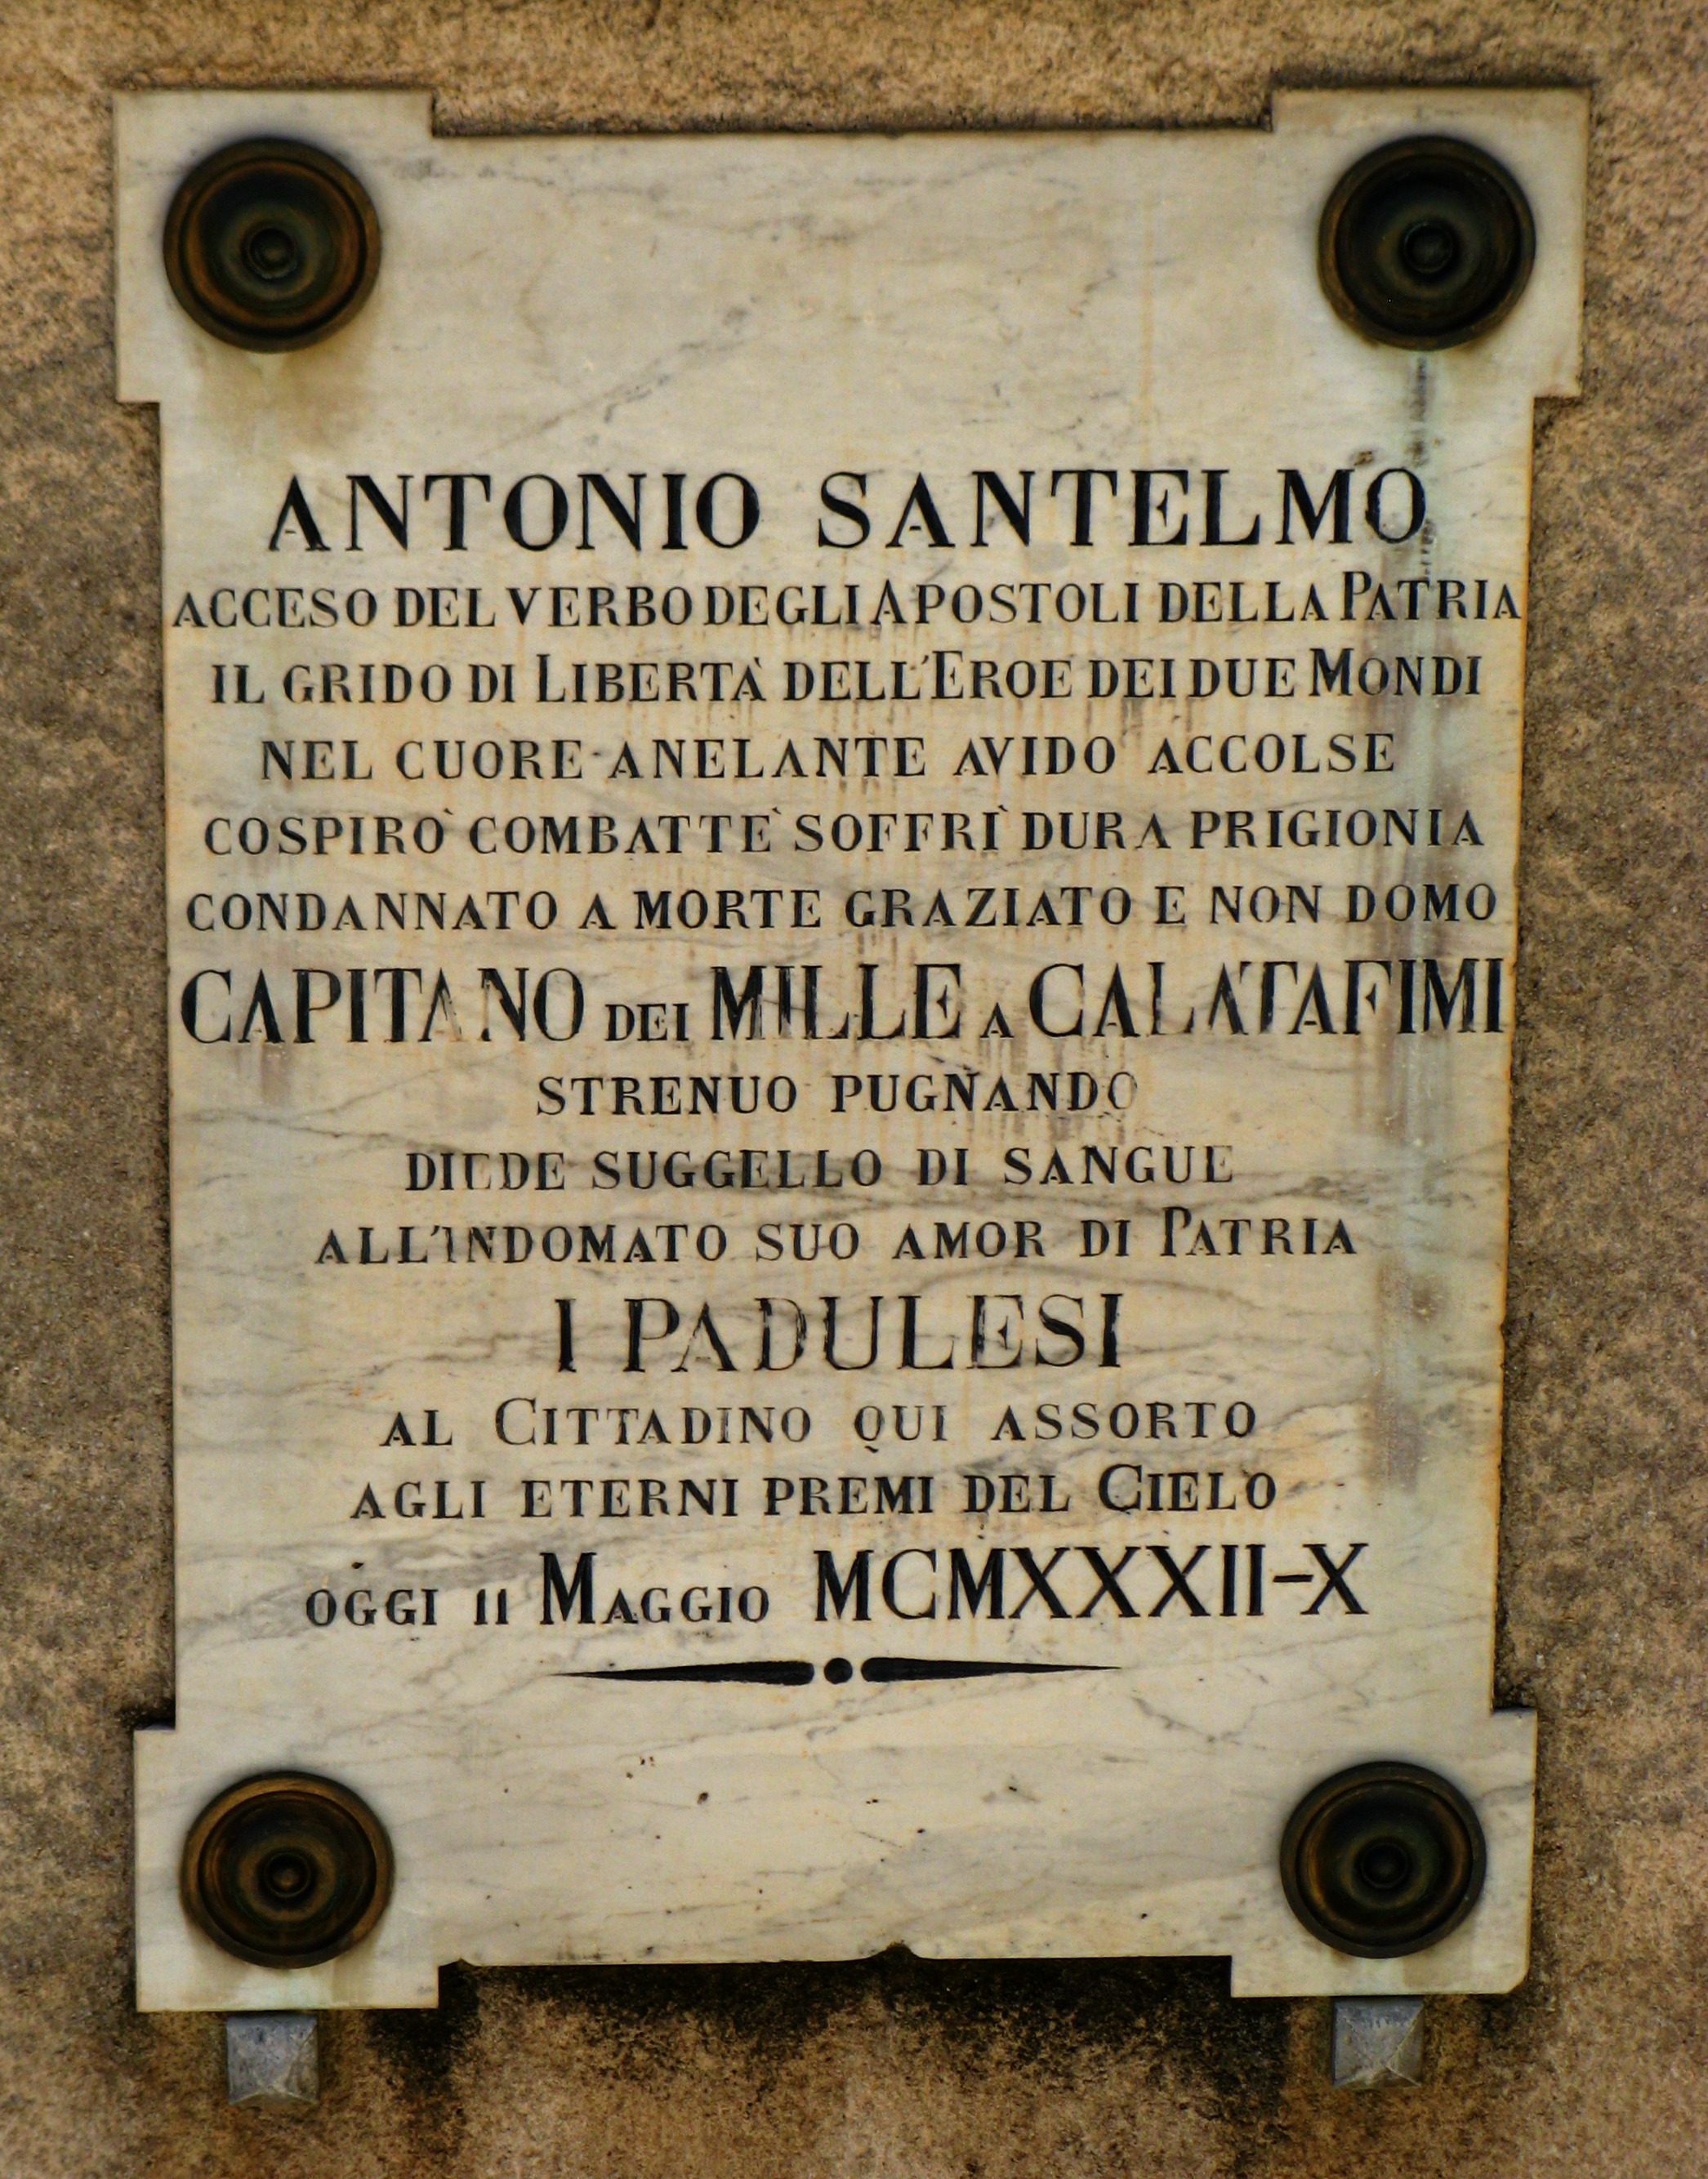 ANTONIO SANTELMO
ACCESO DEL VERBO DEGLI APOSTOLI DELLA PATRIA
IL GRIDO DI LIBERTÀ DELL'EROE DEI DUE MONDI
NEL CUORE ANELANTE AVIDO ACCOLSE
COSPIRÒ COMBATTÈ SOFFRÌ DURA PRIGIONIA
CONDANNATO A MORTE GRAZIATO E NON DOMO
CAPITANO DEI MILLE A CALATAFIMI
STRENUO PUGNANDO
DIEDE SUGGELLO DI SANGUE
ALL'INDOMATO SUO AMOR DI PATRIA
I PADULESI
AL CITTADINO QUI ASSORTO
AGLI ETERNI PREMI DEL CIELO
OGGI 11 MAGGIO MCMXXXII-X